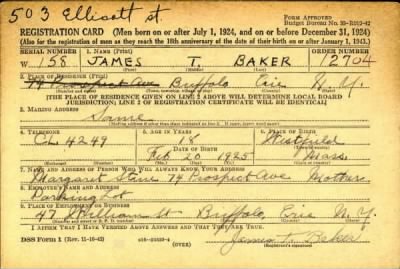 503 Ellicott St.
Form Approved
Budget Bureau No. 33-R012-42
REGISTRATION CARD (Men born on or after July 1, 1924, and on or before December 31, 1924)
(Also for the registration of men as they reach the 18th anniversary of the date of their birth on or after January 1, 1943.)
SERIAL NUMBER
1. NAME (Print)
ORDER NUMBER
W 158 JAMES T. BAKER 12704
(First) (Middle) (Last)
2. PLACE OF RESIDENCE (Print)
74 Prospect Ave Buffalo Erie N.Y.
[THE PLACE OF RESIDENCE GIVEN ON LINE 2 ABOVE WILL DETERMINE LOCAL BOARD
JURISDICTION; LINE 2 OF REGISTRATION CERTIFICATE WILL BE IDENTICAL]
3. MAILING ADDRESS
Same
[Mailing address if other than place indicated on line 2. If same, insert word same]
4. TELEPHONE
5. AGE IN YEARS
6. PLACE OF BIRTH
CL 4249 18 Westfield
DATE OF BIRTH
Feb 20 1925 Mass.
7. NAME AND ADDRESS OF PERSON WHO WILL ALWAYS KNOW YOUR ADDRESS
Margaret 74 Prospect Ave Mother
8. EMPLOYER'S NAME AND ADDRESS
Parking Lot
9. PLACE OF EMPLOYMENT OR BUSINESS
47 William St Buffalo, Erie N.Y.
I AFFIRM THAT I HAVE VERIFIED ABOVE ANSWERS AND THAT THEY ARE TRUE.
DSS Form 1 (Rev. 11-16-42)
(OVER)
James T. Baker